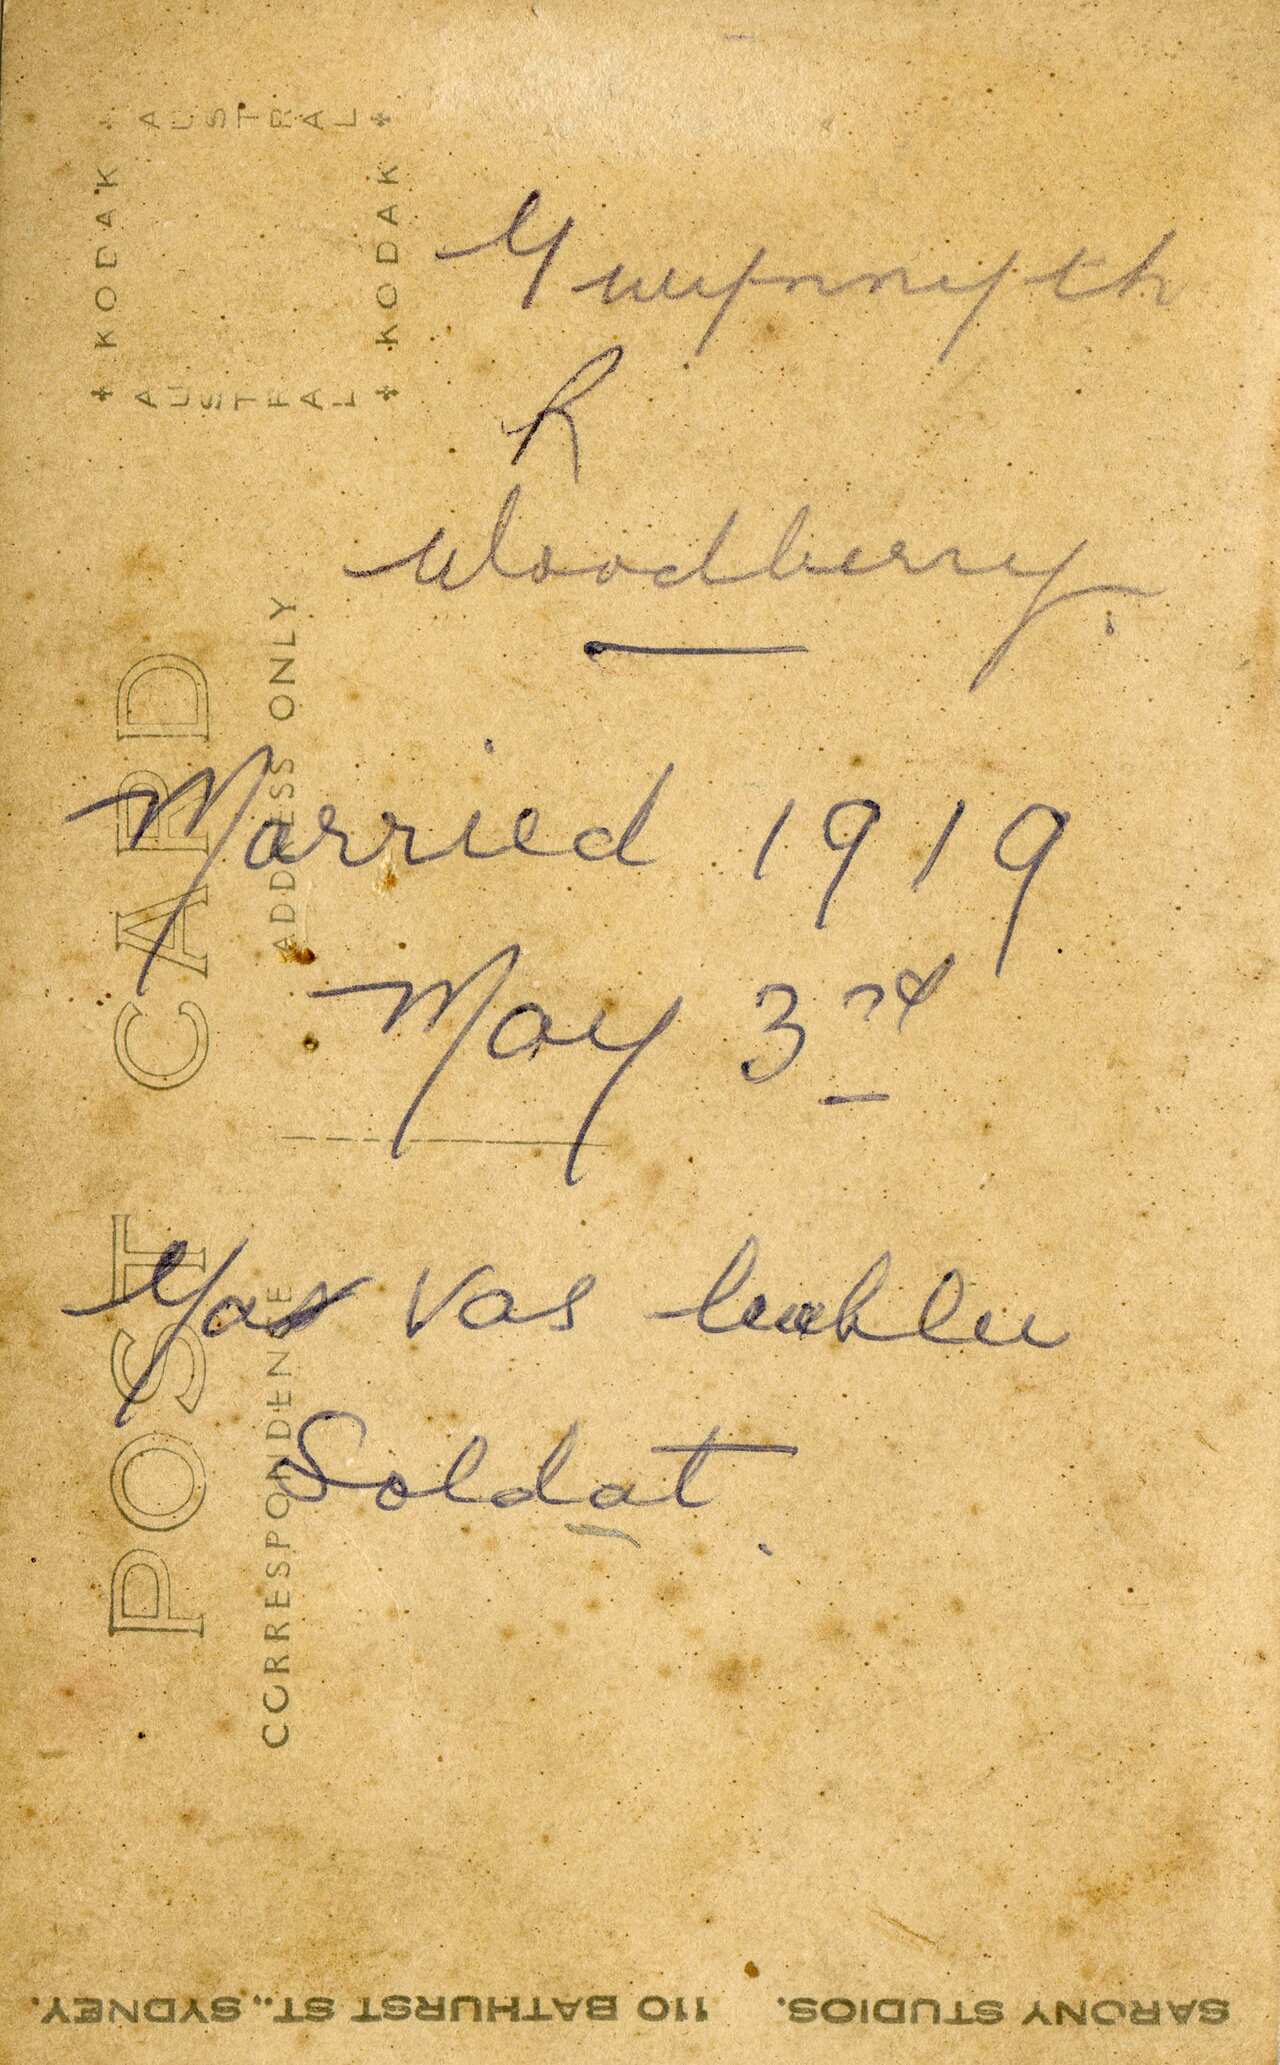 Gwynnyth
R
Woodberry.
Married 1919
May 3rd
Yas Vas
Soldat.
POST CARD
CORRESPONDENCE
ADDRESS ONLY
KODAK
AUSTRAL
KODAK
AUSTRAL
SARONY STUDIOS. 110 BATHURST ST., SYDNEY.